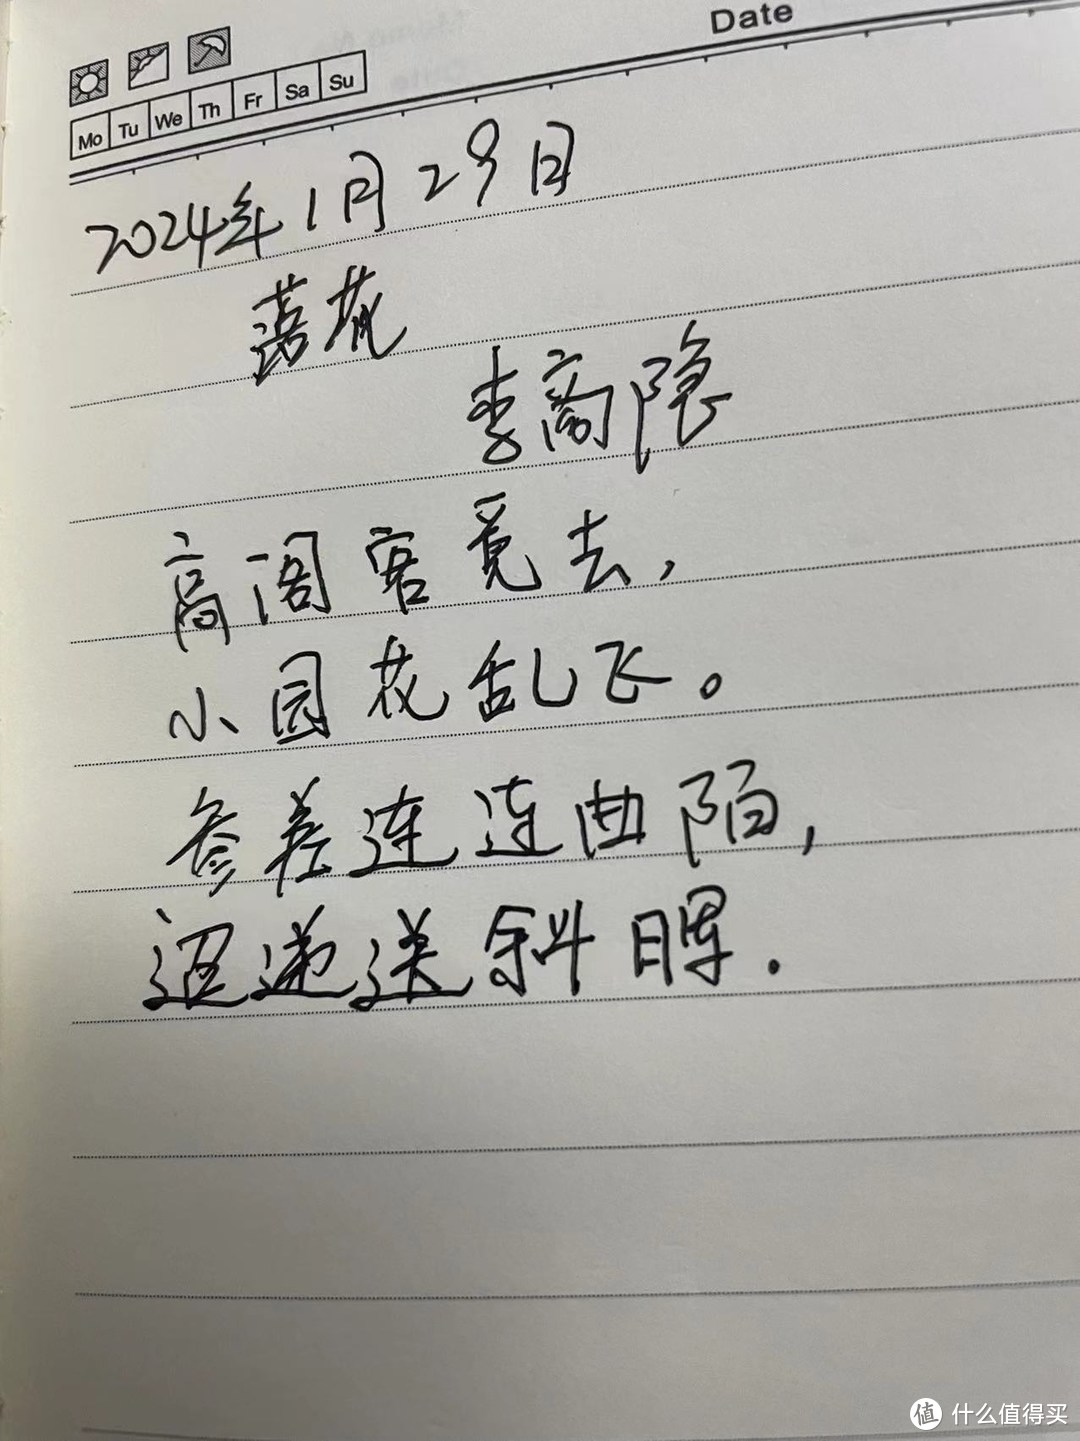 Date
Mo Tu We Th Fr Sa Su
2024年1月29日
落花
李商隐
高阁客觅去，
小园花乱飞。
参差连连曲陌，
迢递送斜晖.
值 什么值得买